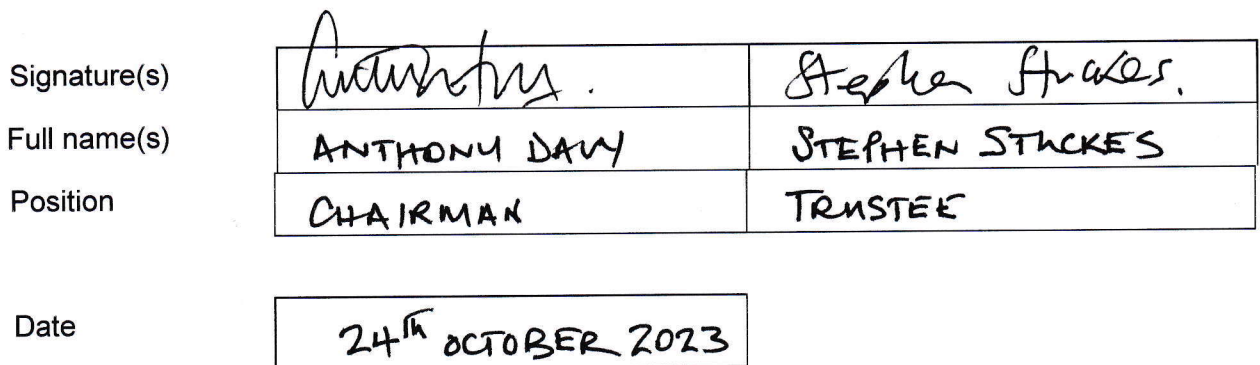 Signature(s) Stephen Stuckes.
Full name(s) ANTHONY DAVY STEPHEN STUCKES
Position CHAIRMAN TRUSTEE
Date 24th OCTOBER 2023